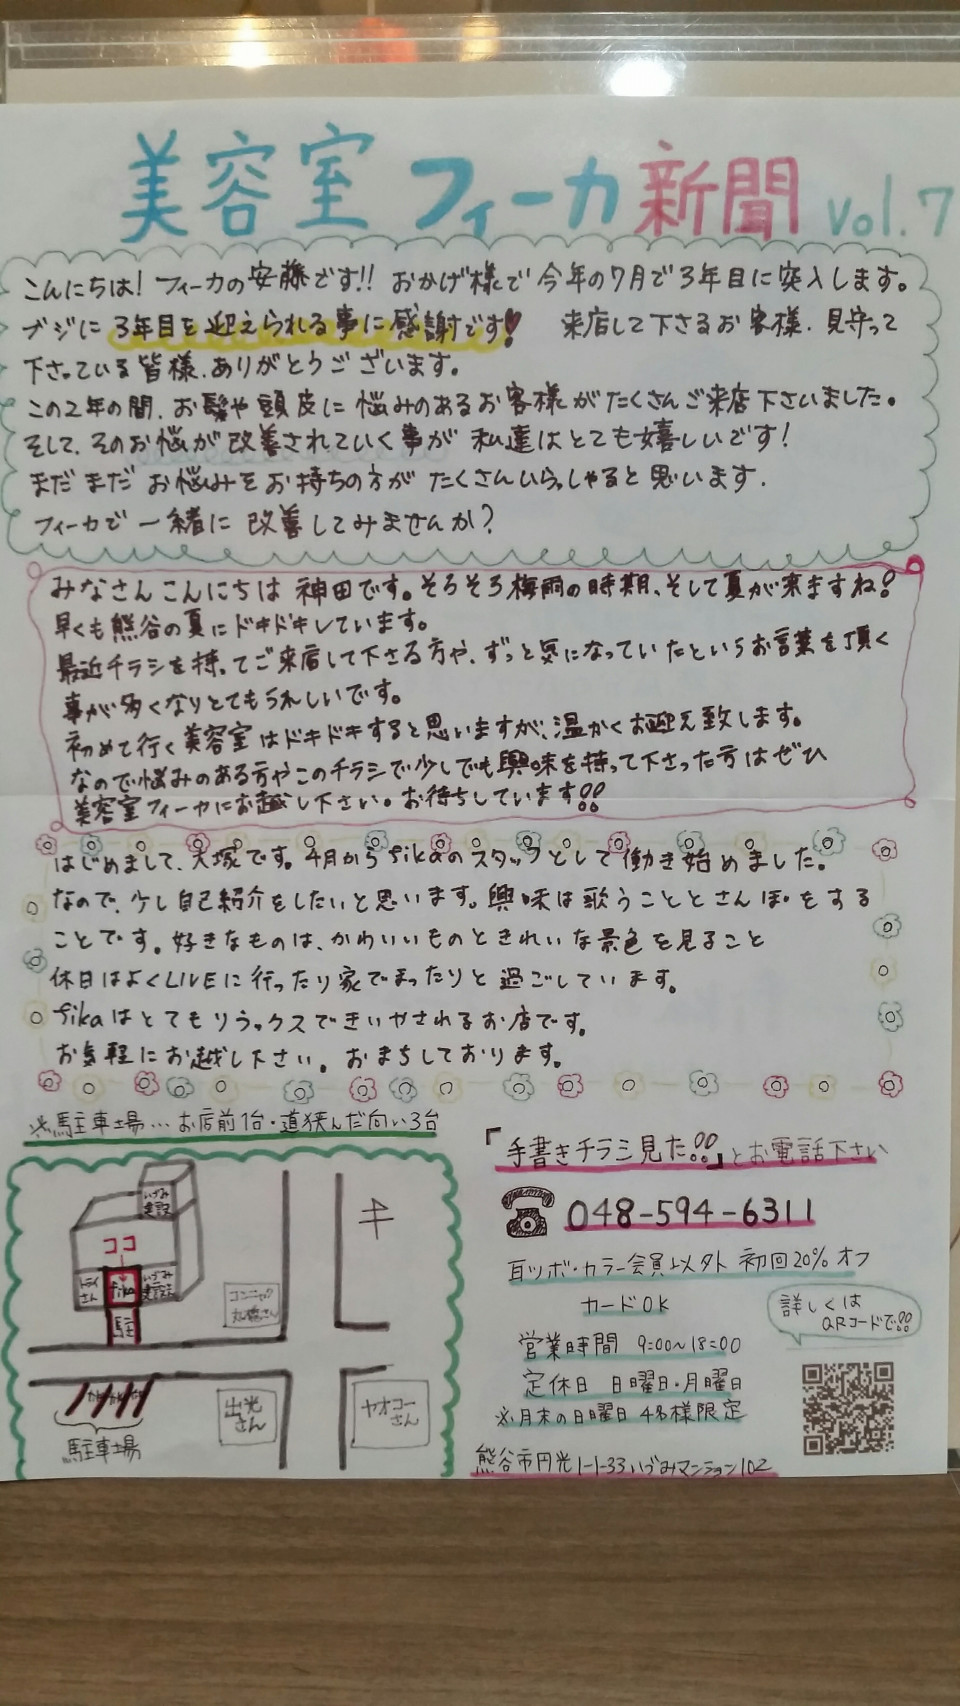 美容室フィーカ新聞 Vol.7
こんにちは!フィーカの安藤です!!おかげ様で今年の7月で3年目に突入します。
ブジに3年目を迎えられる事に感謝です 来店して下さるお客様、見守って
下さっている皆様、ありがとうございます。
この2年の間、お髪や頭皮に悩みのあるお客様がたくさんご来店下さいました。
そして、そのお悩が改善されていく事が私達はとても嬉しいです!
まだまだお悩みをお持ちの方がたくさんいらっしゃると思います.
フィーカで一緒に改善してみませんか?
みなさんこんにちは神田です。そろそろ梅雨の時期、そして夏が来ますね!
早くも熊谷の夏にドキドキしています。
最近チラシを持ってご来店して下さる方や、ずっと気になっていたというお言葉を頂く
事が多くなりとてもうれしいです。
初めて行く美容室はドキドキすると思いますが、温かくお迎え致します。
なので悩みのある方やこのチラシで少しでも興味を持って下さった方はぜひ
美容室フィーカにお越し下さい。お待ちしています!!
はじめまして、大塚です。4月からfikaのスタッフとして働き始めました。
なので、少し自己紹介をしたいと思います。興味は歌うこととさんぽをする
ことです。好きなものは、かわいいものときれいな景色を見ること
休日はよくLIVEに行ったり家でまったりと過ごしています。
fikaはとてもリラックスできいやされるお店です。
お気軽にお越し下さい。おまちしております。
※駐車場…お店前1台・道狭んだ向い3台
「手書きチラシ見た!!」とお電話下さい
048-594-6311
耳ツボ・カラー会員以外 初回20%オフ
カードOK
詳しくは
QRコードで!!
営業時間 9:00~18:00
定休日 日曜日・月曜日
※月末の日曜日4名様限定
熊谷市円光1-1-33いづみマンション102
いづみ
建設
ココ
トライ
さん
fika
いづみ
建設
駐
コンニャク
さん
キ
駐車場
出光
さん
ヤオコー
さん